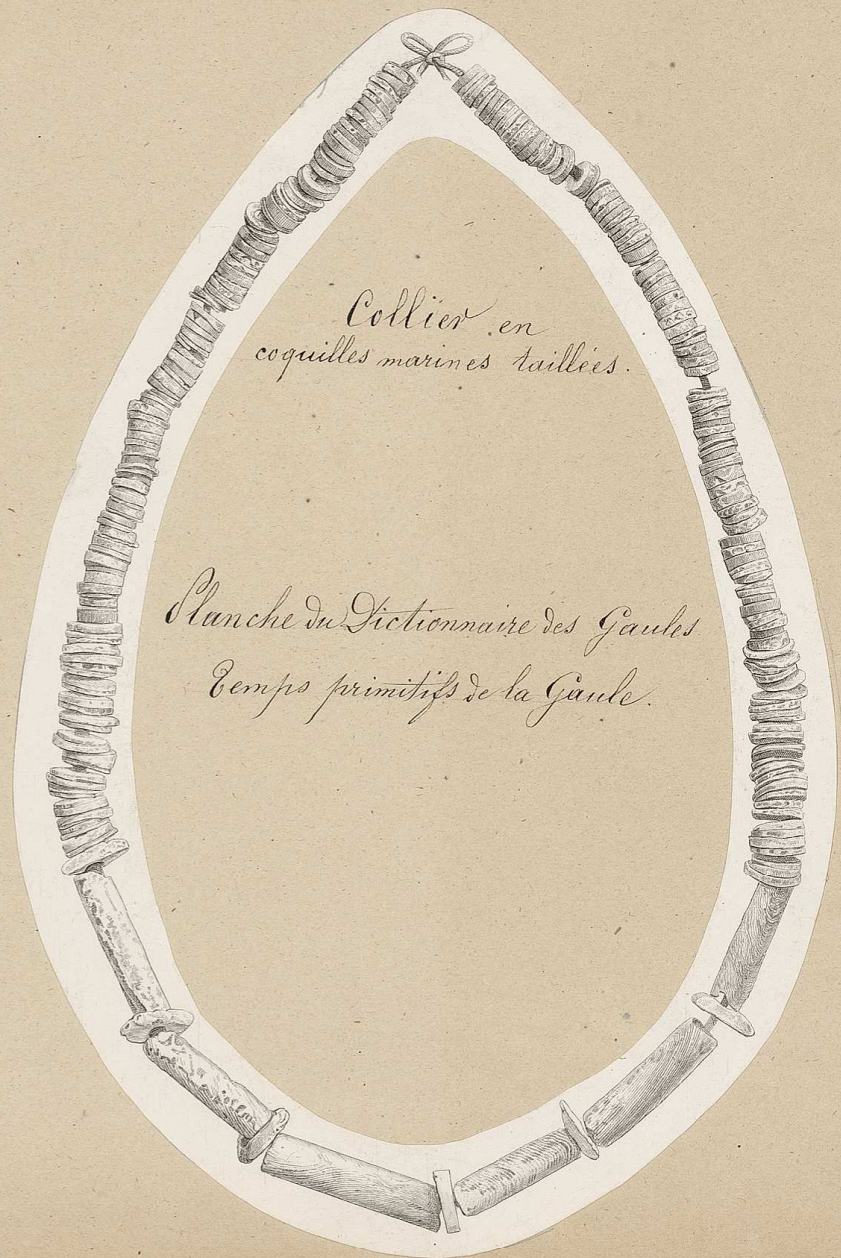 Collier en
coquilles marines taillées.
Planche du Dictionnaire des Gaules
Temps primitifs de la Gaule.